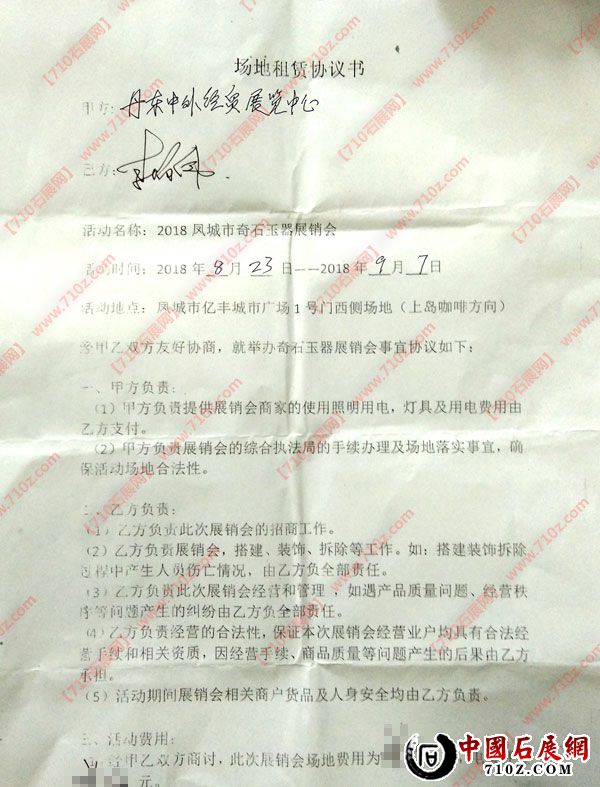 场地租赁协议书
甲方：丹东中外经贸展览中心
乙方：
活动名称：2018凤城市奇石玉器展销会
活动时间：2018年8月23日——2018年9月7日
活动地点：凤城市亿丰城市广场1号门西侧场地（上岛咖啡方向）
经甲乙双方友好协商，就举办奇石玉器展销会事宜协议如下：
一、甲方负责：
（1）甲方负责提供展销会商家的使用照明用电，灯具及用电费用由
乙方支付。
（2）甲方负责展销会的综合执法局的手续办理及场地落实事宜，确
保活动场地合法性。
二、乙方负责：
（1）乙方负责此次展销会的招商工作。
（2）乙方负责展销会，搭建、装饰、拆除等工作。如：搭建装饰拆除
过程中产生人员伤亡情况，由乙方负全部责任。
（3）乙方负责此次展销会经营和管理，如遇产品质量问题、经营秩
序等问题产生的纠纷由乙方负全部责任。
（4）乙方负责经营的合法性，保证本次展销会经营业户均具有合法经
营手续和相关资质，因经营手续、商品质量等问题产生的后果由乙方
承担。
（5）活动期间展销会相关商户货品及人身安全均由乙方负责。
三、活动费用：
经甲乙双方商讨，此次展销会场地费用为
元。
中國石展網
710Z.com
【710石展网】
www.710z.com